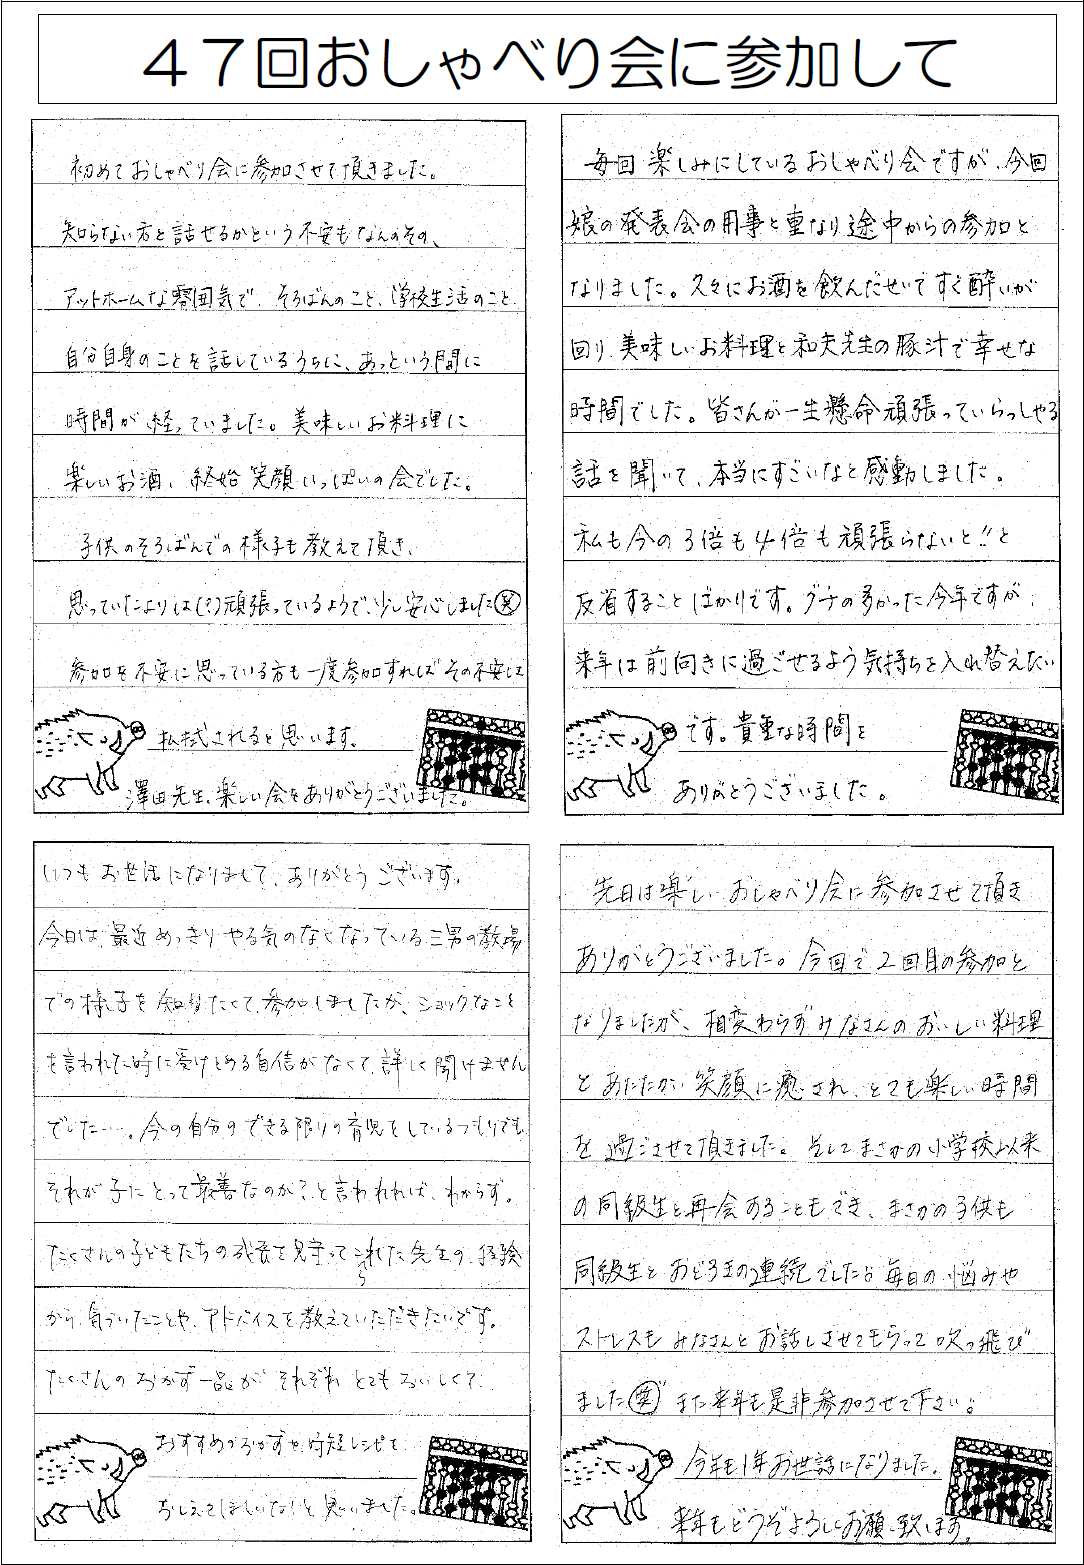 ４７回おしゃべり会に参加して
初めておしゃべり会に参加させて頂きました。
知らない方と話せるかという不安もなんのその、
アットホームな雰囲気で、そろばんのこと、学校生活のこと、
自分自身のことを話しているうちに、あっという間に
時間が経っていました。美味しいお料理に
楽しいお酒、終始笑顔いっぱいの会でした。
子供のそろばんでの様子も教えて頂き、
思っていたよりは(?)頑張っているようで、少し安心しました(笑)
参加を不安に思っている方も一度参加すればその不安は
払拭されると思います。
澤田先生、楽しい会をありがとうございました。
毎回楽しみにしているおしゃべり会ですが、今回
娘の発表会の用事と重なり途中からの参加と
なりました。久々にお酒を飲んだせいですぐ酔いが
回り、美味しいお料理と和夫先生の豚汁で幸せな
時間でした。皆さんが一生懸命頑張っていらっしゃる
話を聞いて、本当にすごいなと感動しました。
私も今の3倍も4倍も頑張らないと!!と
反省することばかりです。グチの多かった今年ですが、
来年は前向きに過ごせるよう気持ちを入れ替えたい
です。貴重な時間を
ありがとうございました。
いつもお世話になりまして、ありがとうございます。
今日は、最近めっきりやる気のなくなっている三男の教場
での様子を知りたくて、参加しましたが、ショックなこと
を言われた時に受けとめる自信がなくて、詳しく聞けません
でした…。今の自分のできる限りの育児をしているつもりでも
それが子にとって最善なのか?と言われれば、わからず。
たくさんの子どもたちの成長を見守ってこられた先生の、経験
から、気づいたことや、アドバイスを教えていただきたいです。
たくさんのおかず一品がそれぞれとてもおいしくて、
おすすめのおかずや、時短レシピを
おしえてほしいな!と思いました。
先日は楽しいおしゃべり会に参加させて頂き
ありがとうございました。今回で2回目の参加と
なりましたが、相変わらずみなさんのおいしい料理
とあたたかい笑顔に癒され、とても楽しい時間
を過ごさせて頂きました。そしてまさかの小学校以来
の同級生と再会あることもでき、まさかの子供も
同級生とおどろきの連続でした。毎日の悩みや
ストレスもみなさんとお話しさせてもらって吹っ飛び
ました(笑)また来年も是非参加させて下さい。
今年も1年お世話になりました。
来年もどうぞよろしくお願い致します。